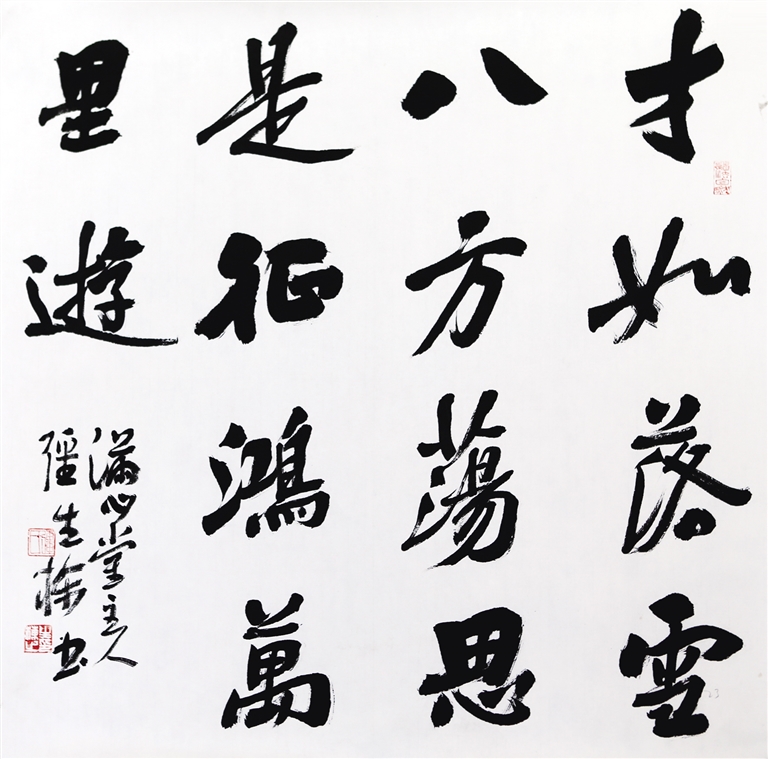 才如落雪
八方蕩思
是征鴻萬
里遊
滿心堂主人
生書